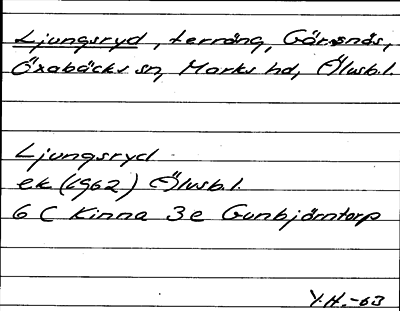 Ljungsryd, terräng, Görsnäs,
Öxabäcks sn, Marks hd, Älvsb.l.
Ljungsryd
ek (1962) Älvsb.l.
6 C Kinna 3e Gunbjörntorp
Y.H.-63